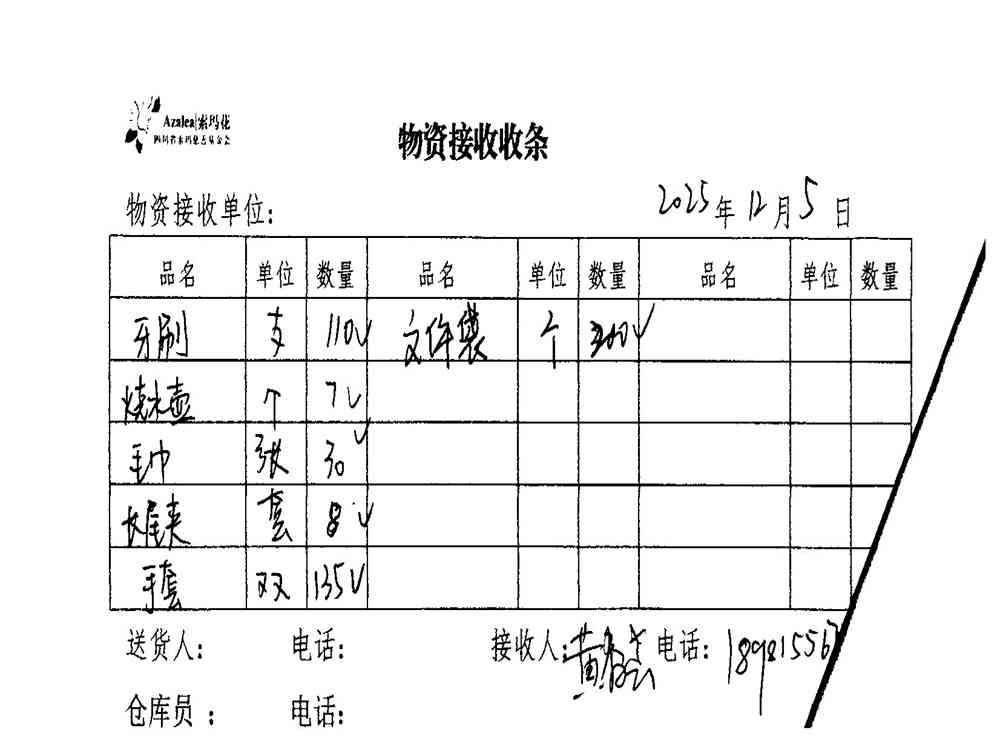 Azalea 索玛花
四川省索玛慈善基金会
物资接收收条
物资接收单位: 2025年12月5日
品名 单位 数量 品名 单位 数量 品名 单位 数量
牙刷 支 110√ 文件袋 个 √
烧水壶 个 7√
毛巾 张 30√
长尾夹 套 8√
手套 双 135√
送货人: 电话: 接收人:黄 电话:1898155
仓库员: 电话: